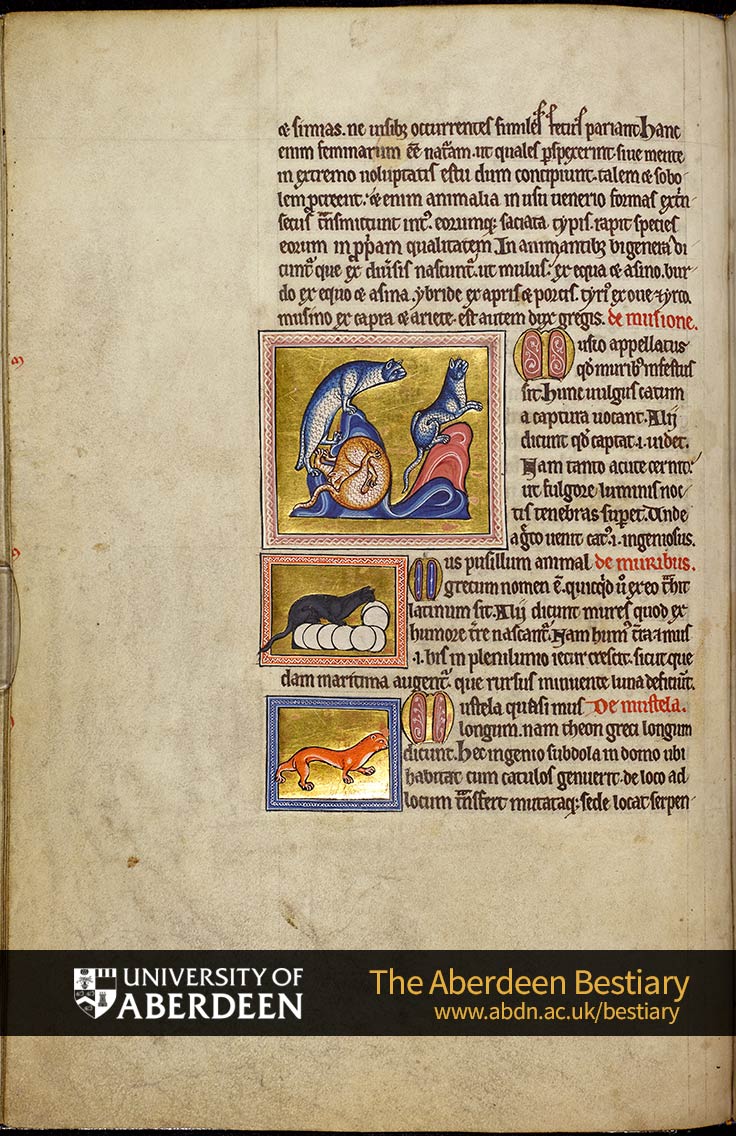 & simias. ne uisib; occurrentes similes fetus pariant. Hanc
enim feminarum e͂e nat͂am. ut quales p͂spexerint siue mente
in extremo uoluptatis estu dum concipiunt. talem & sobo
lem p͂creent. & enim animalia in usu uenerio formas ext͂n
secus t͂nsmittunt int͂. eorumq; saciata typis. rapit species
eorum in p͂p͂am qualitatem. In animantib; bigenera di
cunt͂ que ex diu͂sis nascunt͂. ut mulus: ex equa & asino. bur
do ex equo & asina. ybride ex apris & porcis. tyri͂ ex oue & yrco.
musino ex capra & ariete. est autem dux gregis. de musione.
Musio appellatus
qd͂ murib͂ infestus
sit. Hunc uulgus catum
a captura uocant. Alij
dicunt qd͂ captat .i. uidet.
Nam tanto acute cernit͂.
ut fulgore luminis noc
tis tenebras sup͂et. Unde
a g͂co uenit cat͂ .i. ingeniosus.
Mus pusillum animal de muribus.
grecum nomen e͂. quicq͂d u͂ ex eo t͂hit
latinum fit. Alij dicunt mures quod ex
humore t͂re nascant͂. Nam hum͂ t͂ra & mus
.i. his in plenilunio iecur crescit. sicut que
dam maritima augent͂. que rursus minuente luna deficiu͂t.
Mustela quasi mus De mustela.
longum. nam theon greci longum
dicunt. Hec ingenio subdola in domo ubi
habitat cum catulos genuerit. de loco ad
locum t͂nsfert mutataq; sede locat. serpen
UNIVERSITY OF
ABERDEEN
The Aberdeen Bestiary
www.abdn.ac.uk/bestiary